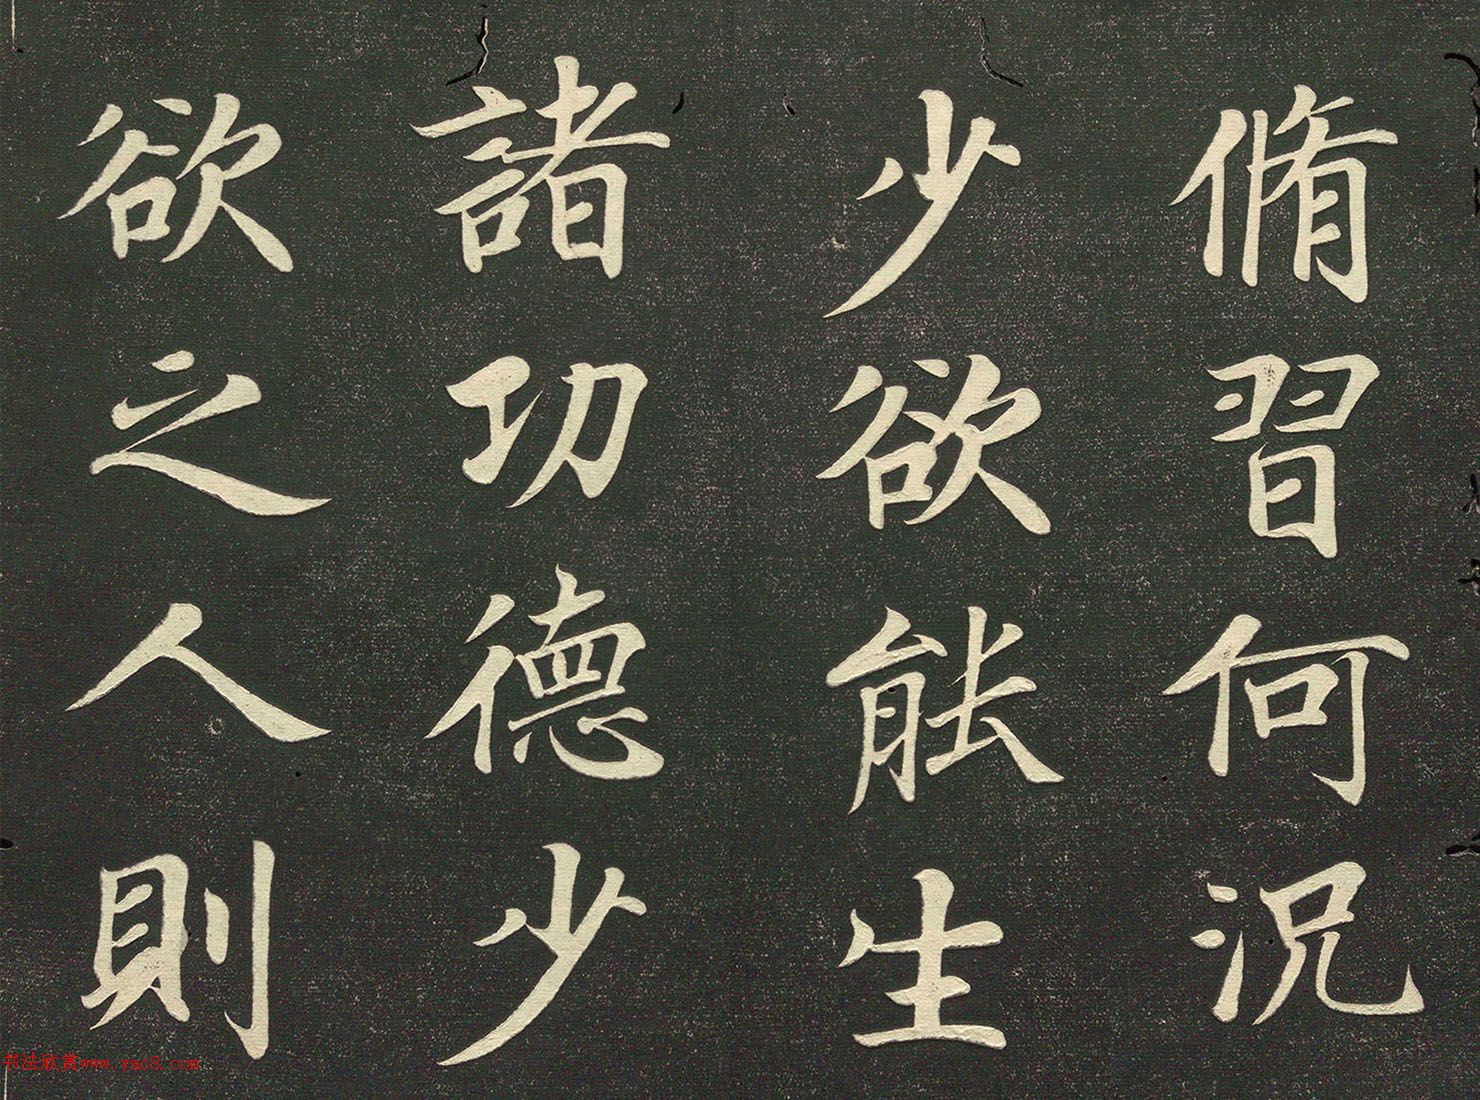 脩習何況
少欲能生
諸功德少
欲之人則
书法欣赏www.yac8.com